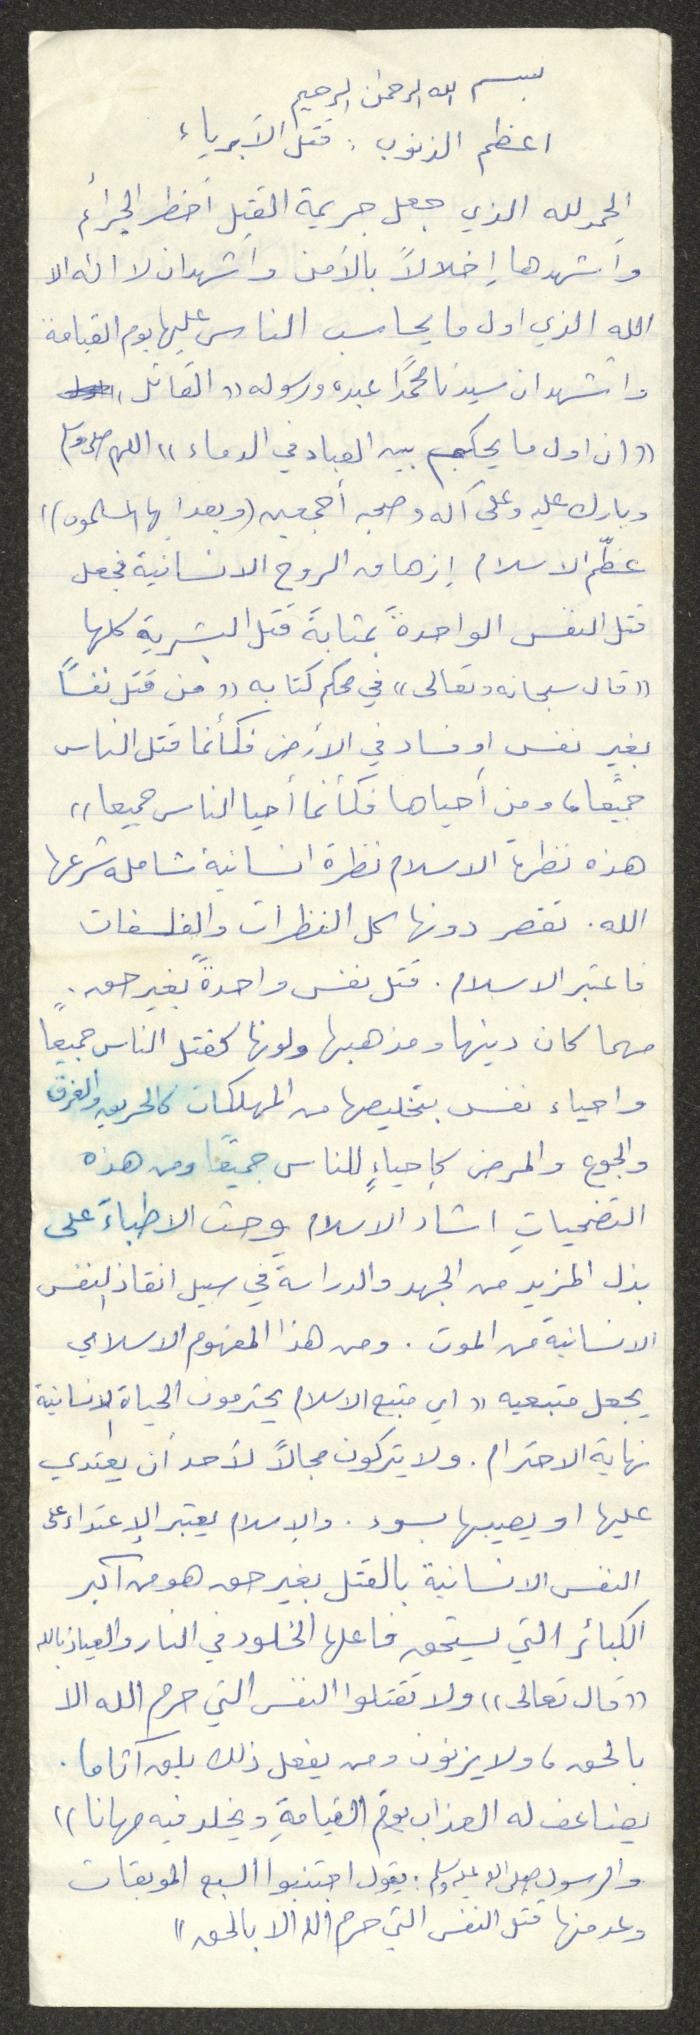 بسم الله الرحمن الرحيم
اعظم الذنوب : قتل الأبرياء
الحمد لله الذي جعل جريمة القتل أخطر الجرائم
وأشدها إخلالاً بالأمن وأشهد ان لا اله الا
الله الذي اول ما يحاسب الناس عليها يوم القيامة
واشهد ان سيدنا محمدًا عبده ورسوله « القائل »
« ان اول ما يحكم بين العباد في الدماء » اللهم صلي وسلم
وبارك عليه وعلى آله وصحبه أجمعين (وبعد ايها المسلمون)
عظّم الاسلام إزهاق الروح الانسانية فجعل
قتل النفس الواحدة بمثابة قتل البشرية كلها
« قال سبحانه وتعالى » في محكم كتابه « من قتل نفسًا
بغير نفس او فساد في الأرض فكأنما قتل الناس
جميعًا، ومن أحياها فكأنما أحيا الناس جميعا »
هذه نظرة الاسلام نظرة انسانية شاملة شرعها
الله. تقصر دونها كل النظرات والفلسفات
فاعتبر الاسلام. قتل نفس واحدةً بغير حق.
مهما كان دينها ومذهبها ولونها كقتل الناس جميعًا
واحياء نفس بتخليصها من المهلكات كالحريق والغرق
والجوع والمرض كإحياءٍ للناس جميعًا ومن هذه
التضحياتِ اشاد الاسلام وحث الاطباءَ على
بذل المزيد من الجهد والدراسة في سبيل انقاذ النفس
الانسانية من الموت. ومن هذا المفهوم الاسلامي
يجعل متبعيه « اي متبع الاسلام يحترمون الحياة الانسانية
نهاية الاحترام. ولا يتركون مجالاً لأحد أن يعتدي
عليها او يصيبها بسوء. والإسلام يعتبر الإعتداء على
النفس الانسانية بالقتل بغير حق هو من اكبر
الكبائر التي يستحق فاعلها الخلود في النار والعياذ بالله
« قال تعالى » ولا تقتلوا النفس التي حرم الله الا
بالحق، ولا يزنون ومن يفعل ذلك يلق آثاما.
يضاعف له العذاب يوم القيامةِ ويخلد فيه مهانا »
والرسول صلى الله عليه وسلم: يقول اجتنبوا السبع الموبقات
وعد منها قتل النفس التي حرم الله الا بالحق »